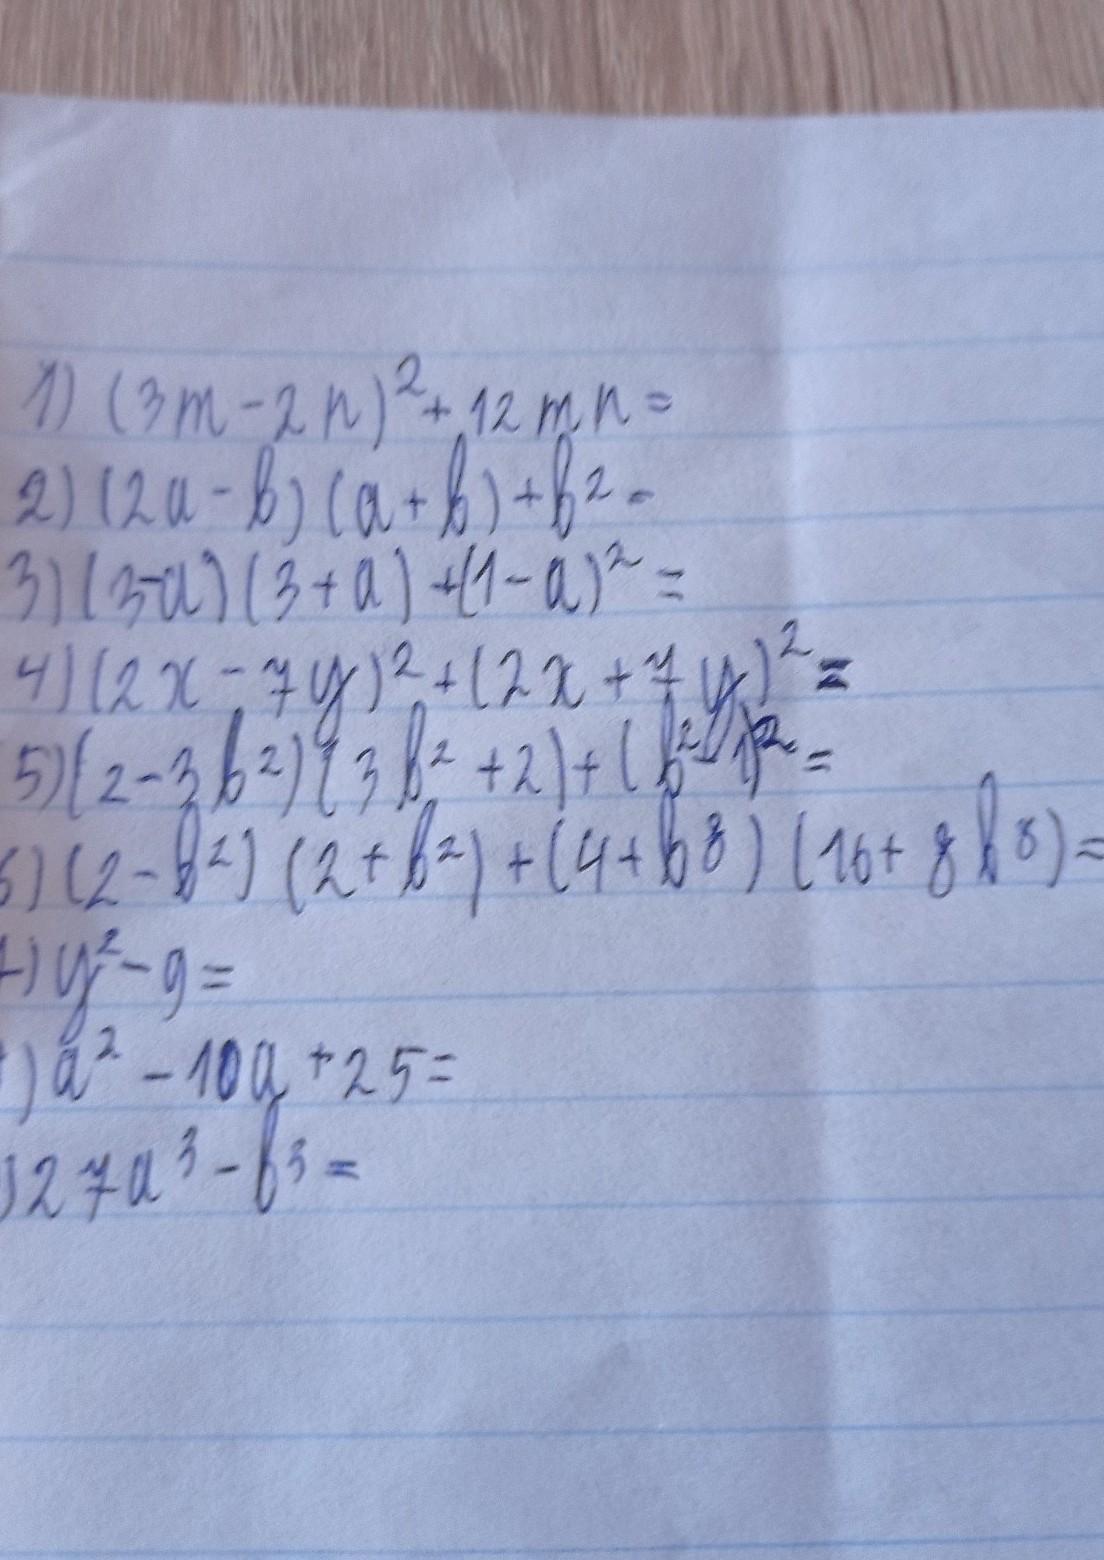 1) (3m - 2n)² + 12mn =
2) (2a - b) (a + b) + b² =
3) (3-a) (3 + a) + (1 - a)² =
4) (2x - 7y)² + (2x + 7y)² =
5) (2 - 3b²) (3b² + 2) + (b² - 1)² =
6) (2 - b²) (2 + b²) + (4 + b8) (16 + 8b8) =
) y² - 9 =
) a² - 10a + 25 =
) 27a³ - b³ =